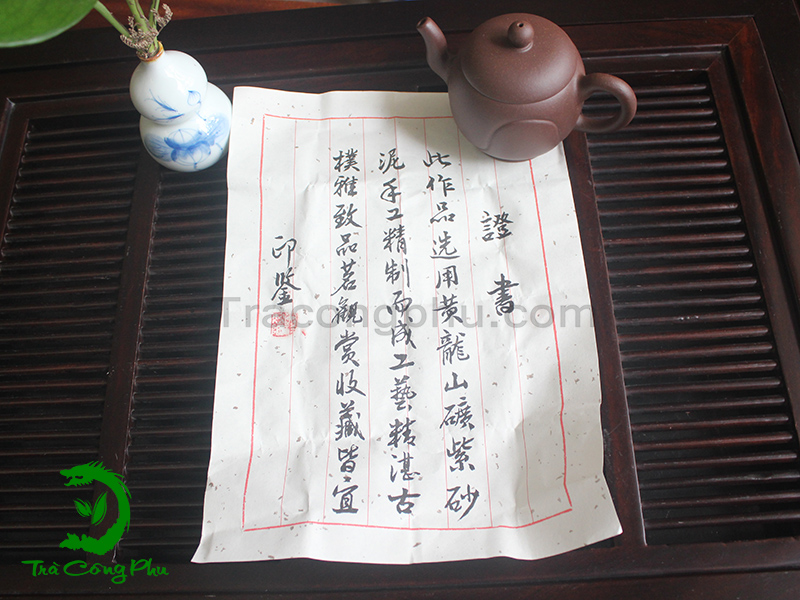 證書
此作品选用黄龍山礦紫砂
泥手工精制而成工藝精湛古
樸雅致品茗觀赏收藏皆宜
印鑒
Tracongphu.com
Trà Công Phu